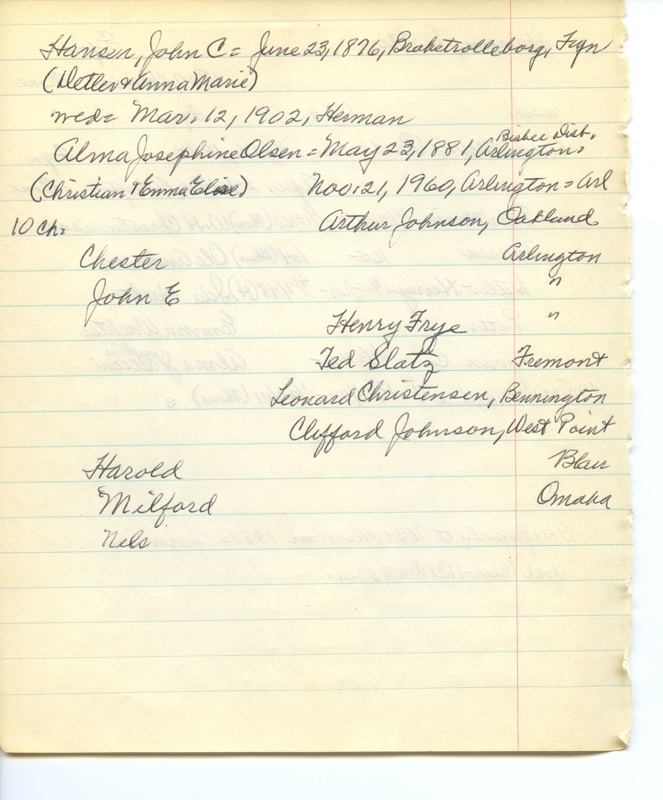 Hansen, John C = June 23, 1876, Braketrolleborg, Fyn
(Detlev & Anna Marie)
wed = Mar. 12, 1902, Herman
Bisbee Dist.
Alma Josephine Olsen = May 23, 1881, Arlington =
(Christian & Emma Elise) Nov. 21, 1960, Arlington = Arl
10 ch = Arthur Johnson, Oakland
Chester Arlington
John E "
Henry Frye "
Ted Slatz Fremont
Leonard Christensen, Bennington
Clifford Johnson, West Point
Harold Blair
Milford Omaha
Nels